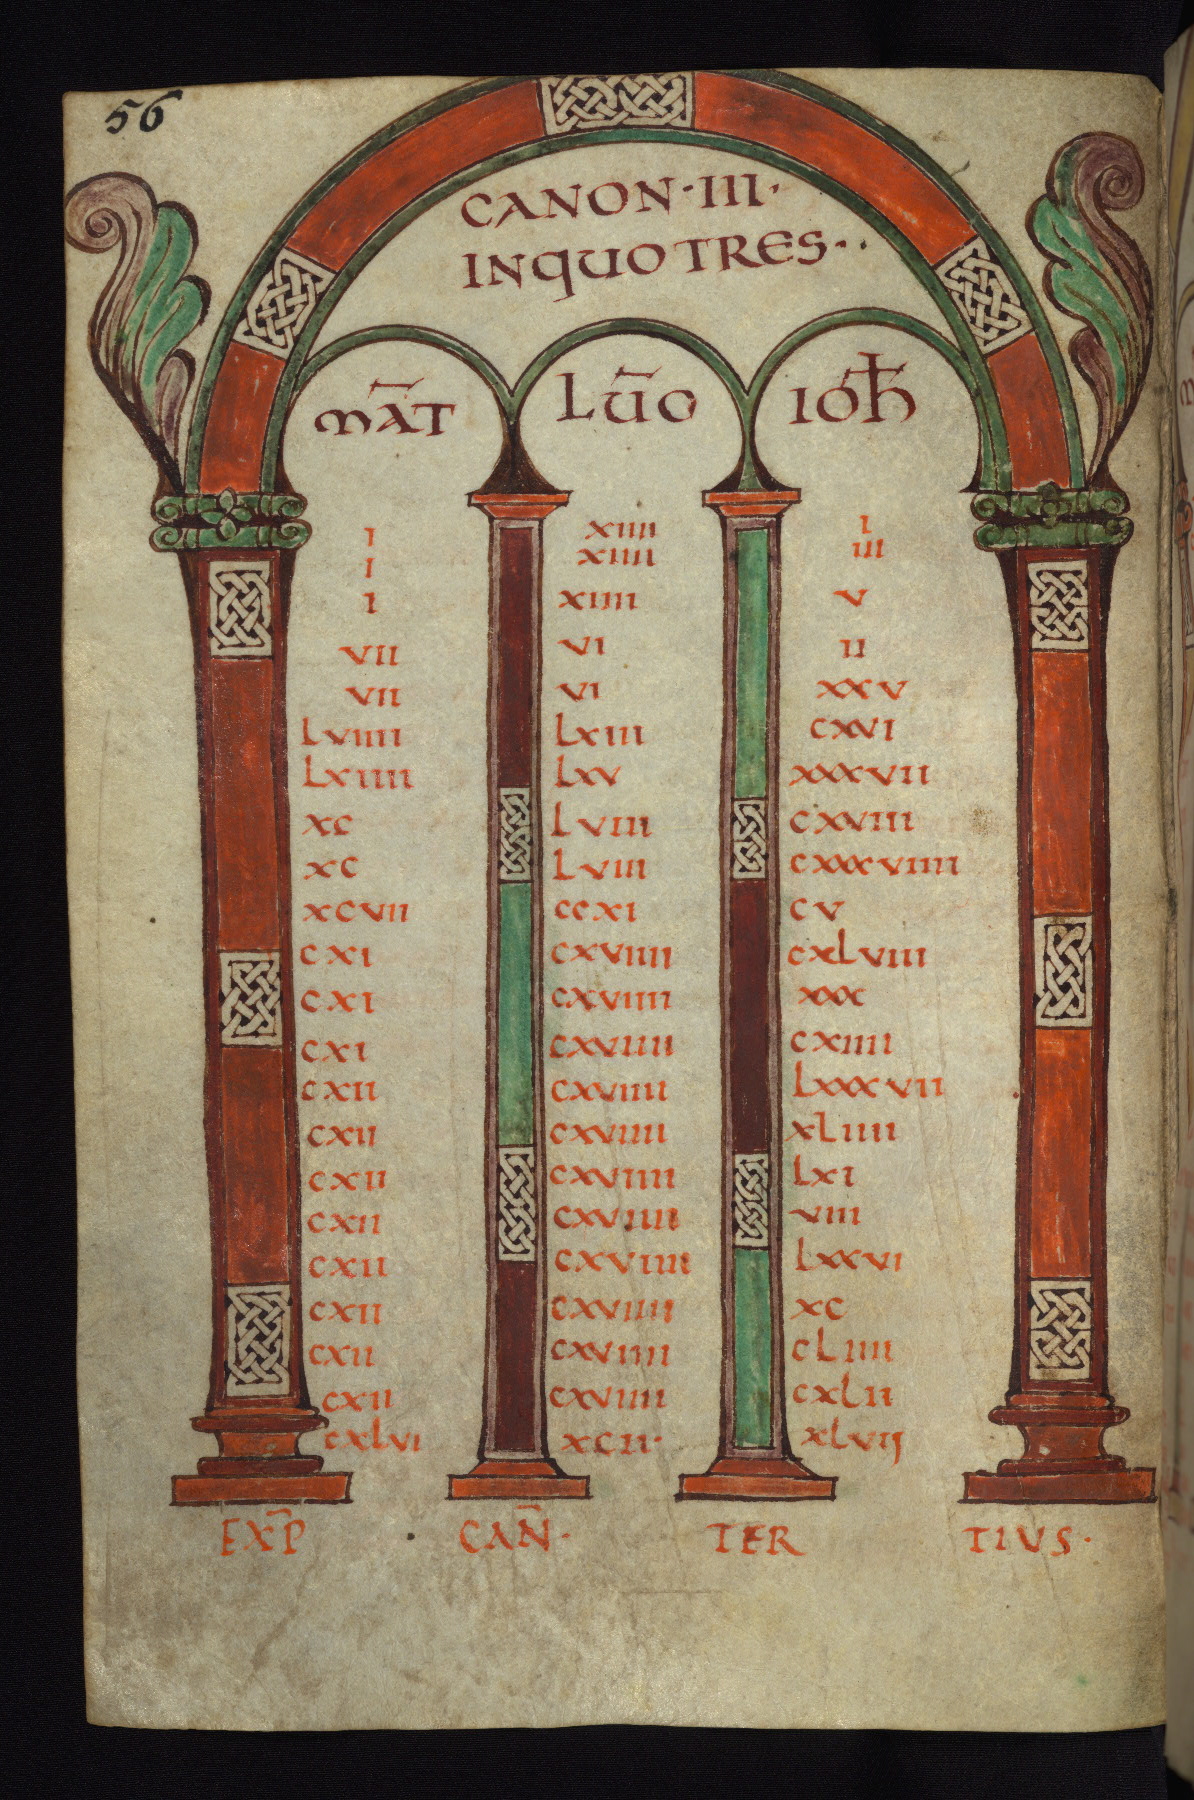 56
CANON·III·
INQUO TRES··
MAT LUO IOH
I XIIII I
I XIIII III
I XIIII V
VII VI II
VII VI XXV
LVIIII LXIII CXVI
LXIIII LXV XXXVII
XC LVIII CXVIII
XC LVIII CXXXVIIII
XCVII CCXI CV
CXI CXVIIII CXLVIII
CXI CXVIIII XXX
CXI CXVIIII CXIIII
CXII CXVIIII LXXXVII
CXII CXVIIII XLIIII
CXII CXVIIII LXI
CXII CXVIIII VIII
CXII CXVIIII LXXVI
CXII CXVIIII XC
CXII CXVIIII CLIIII
CXII CXVIIII CXLII
CXLVI XCII· XLVIJ
EXP CAN· TER TIUS·